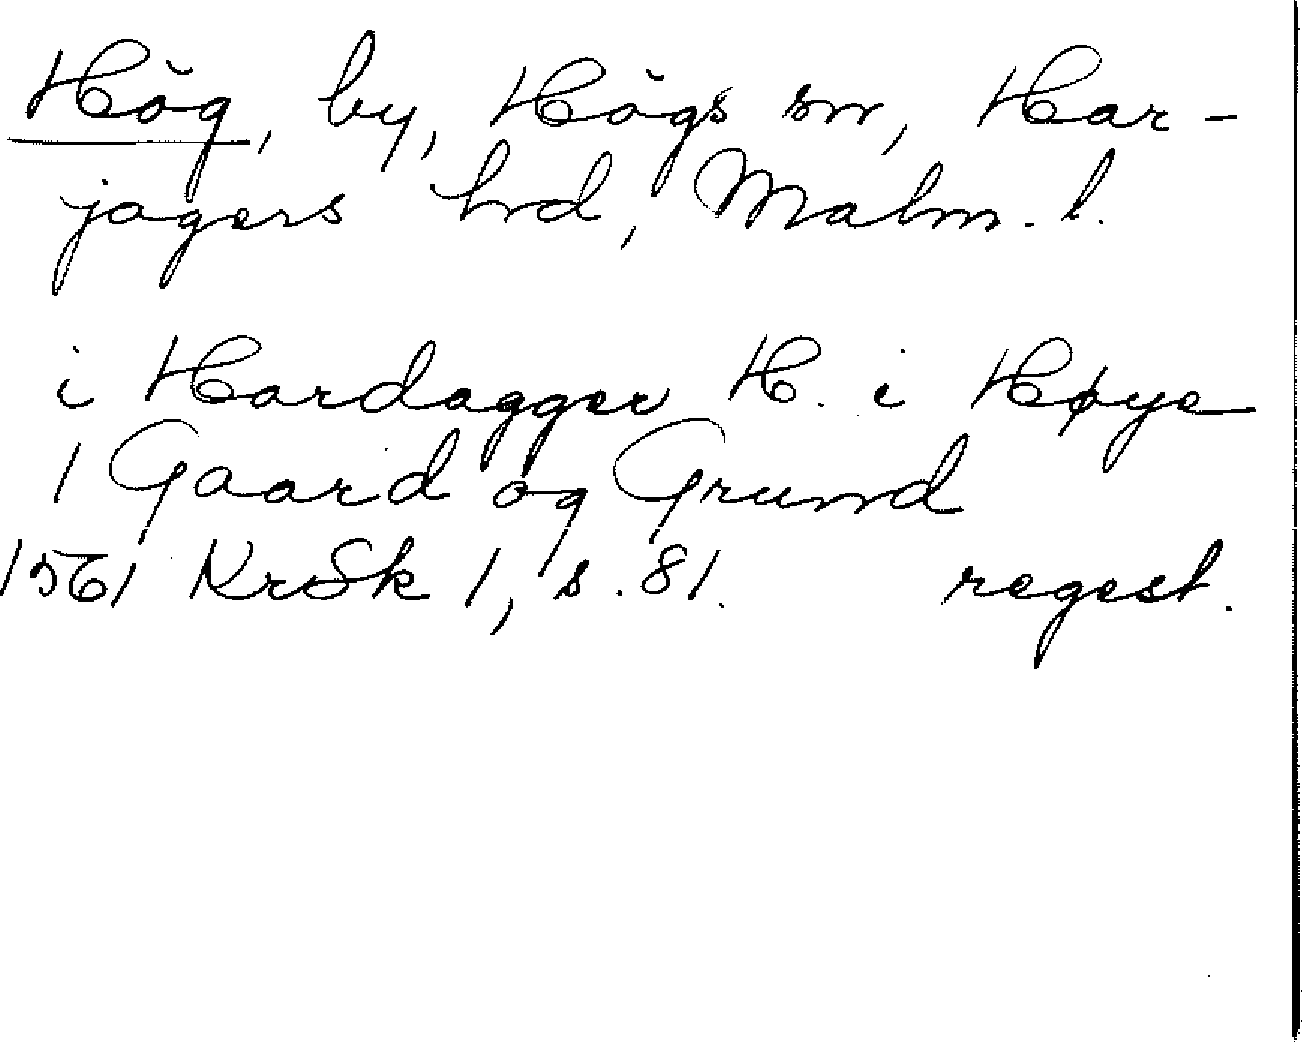 Hög, by, Högs sn, Har-
jagers hrd, Malm. l.
i Hardagger H. i Høye
1 Gaard og Grund
1561 KrSk 1, s. 81. regest.